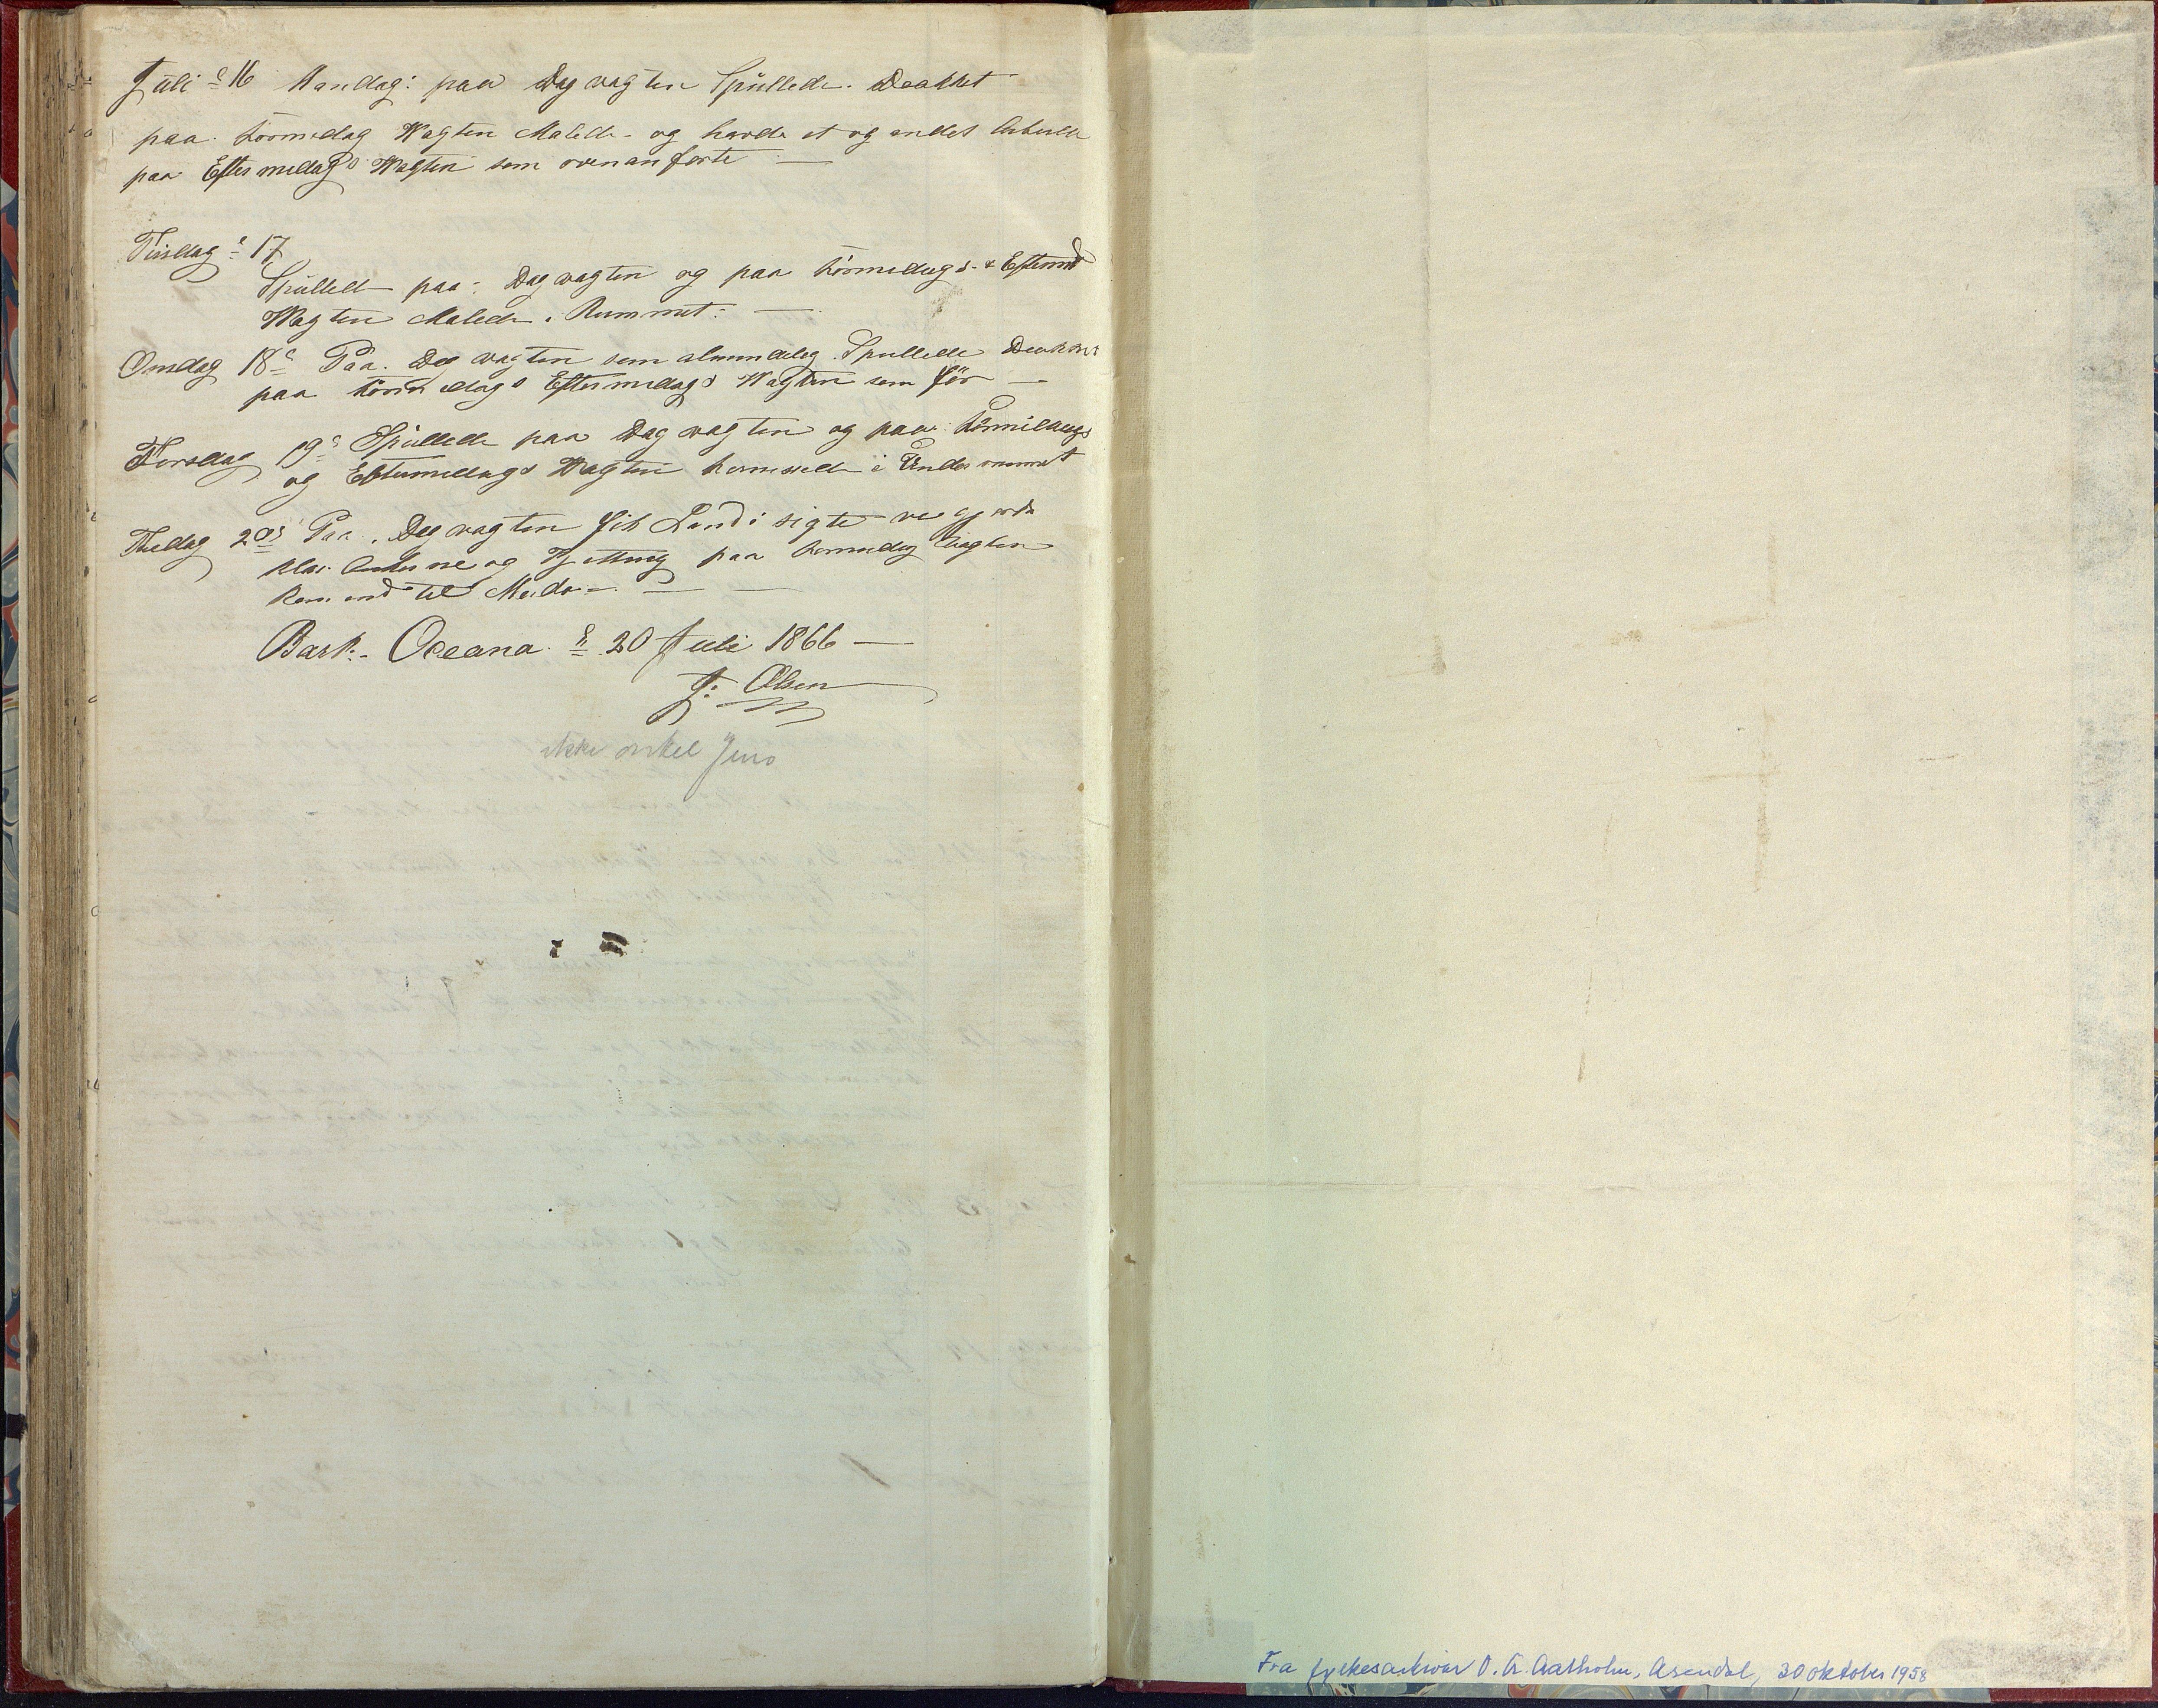 Juli d 16 Mandag: paa Dag vagten Spüllede. Deakket
paa formedag Wagten Malede - og havde et og andet Arbeide
paa Eftermedags Wagten som ovenanförte —
Tirsdag d 17
Spüllede paa: Dag vagten og paa Formedags- & Eftermd
Wagten Malede i Rummet: —
Onsdag 18d Paa. Dag vagten som almindelig. Spullede Deakket
paa formedags Eftermedags Wagten som för —
Torsdag 19d Spüllede paa Dag vagten og paa Formedags
og Eftermedags Wagten i Underrummet
Fredag 20d Paa. Dag vagten fik Land i sigte vi gjorde
klar Ankerne og Kjetting paa formedag Vagten
kom ind til —
Bark - Oceana d 20 Juli 1866 —
J: Olsen
ikke onkel Jens
Fra fylkesarkivar O. A. Aalholm, Arendal, 30 oktober 1958